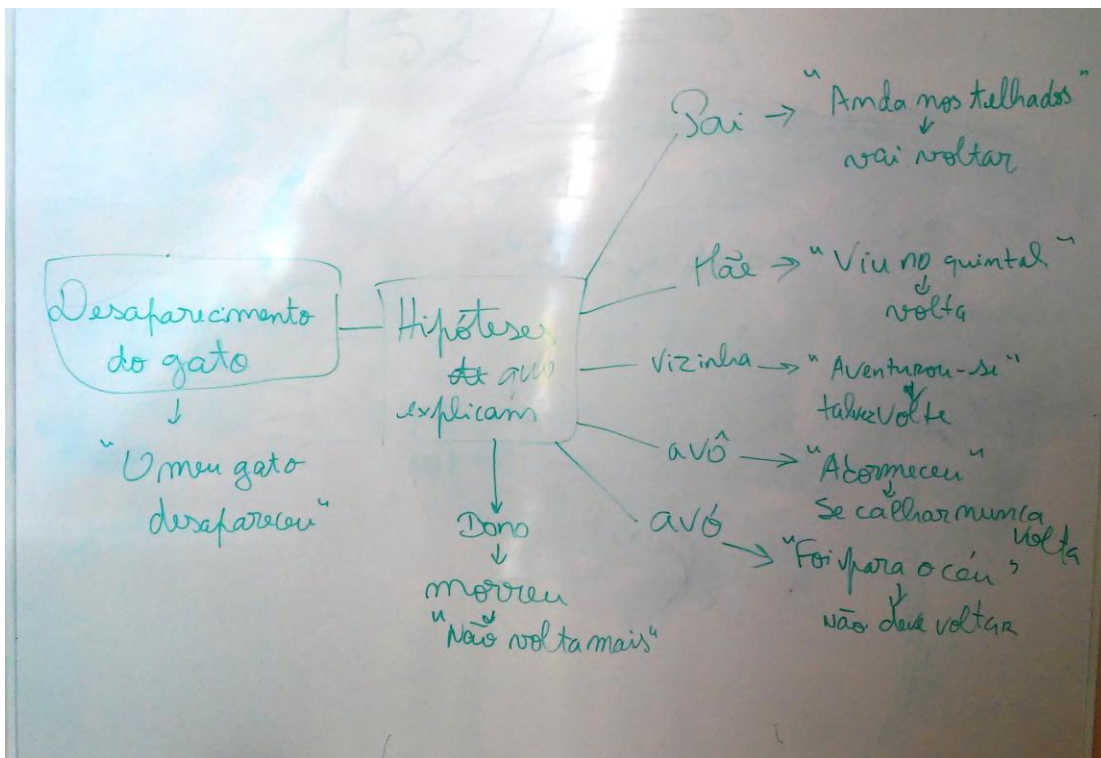 Desaparecimento
do gato
"O meu gato
desapareceu"
Hipóteses
que
explicam
Dono
morreu
"Não volta mais"
Pai → "Anda nos telhados"
vai voltar
Mãe → "Viu no quintal"
volta
Vizinha → "Aventurou-se"
talvez volte
avô → "Adormeceu"
Se calhar nunca
volta
avó
"Foi para o céu"
Não deve voltar